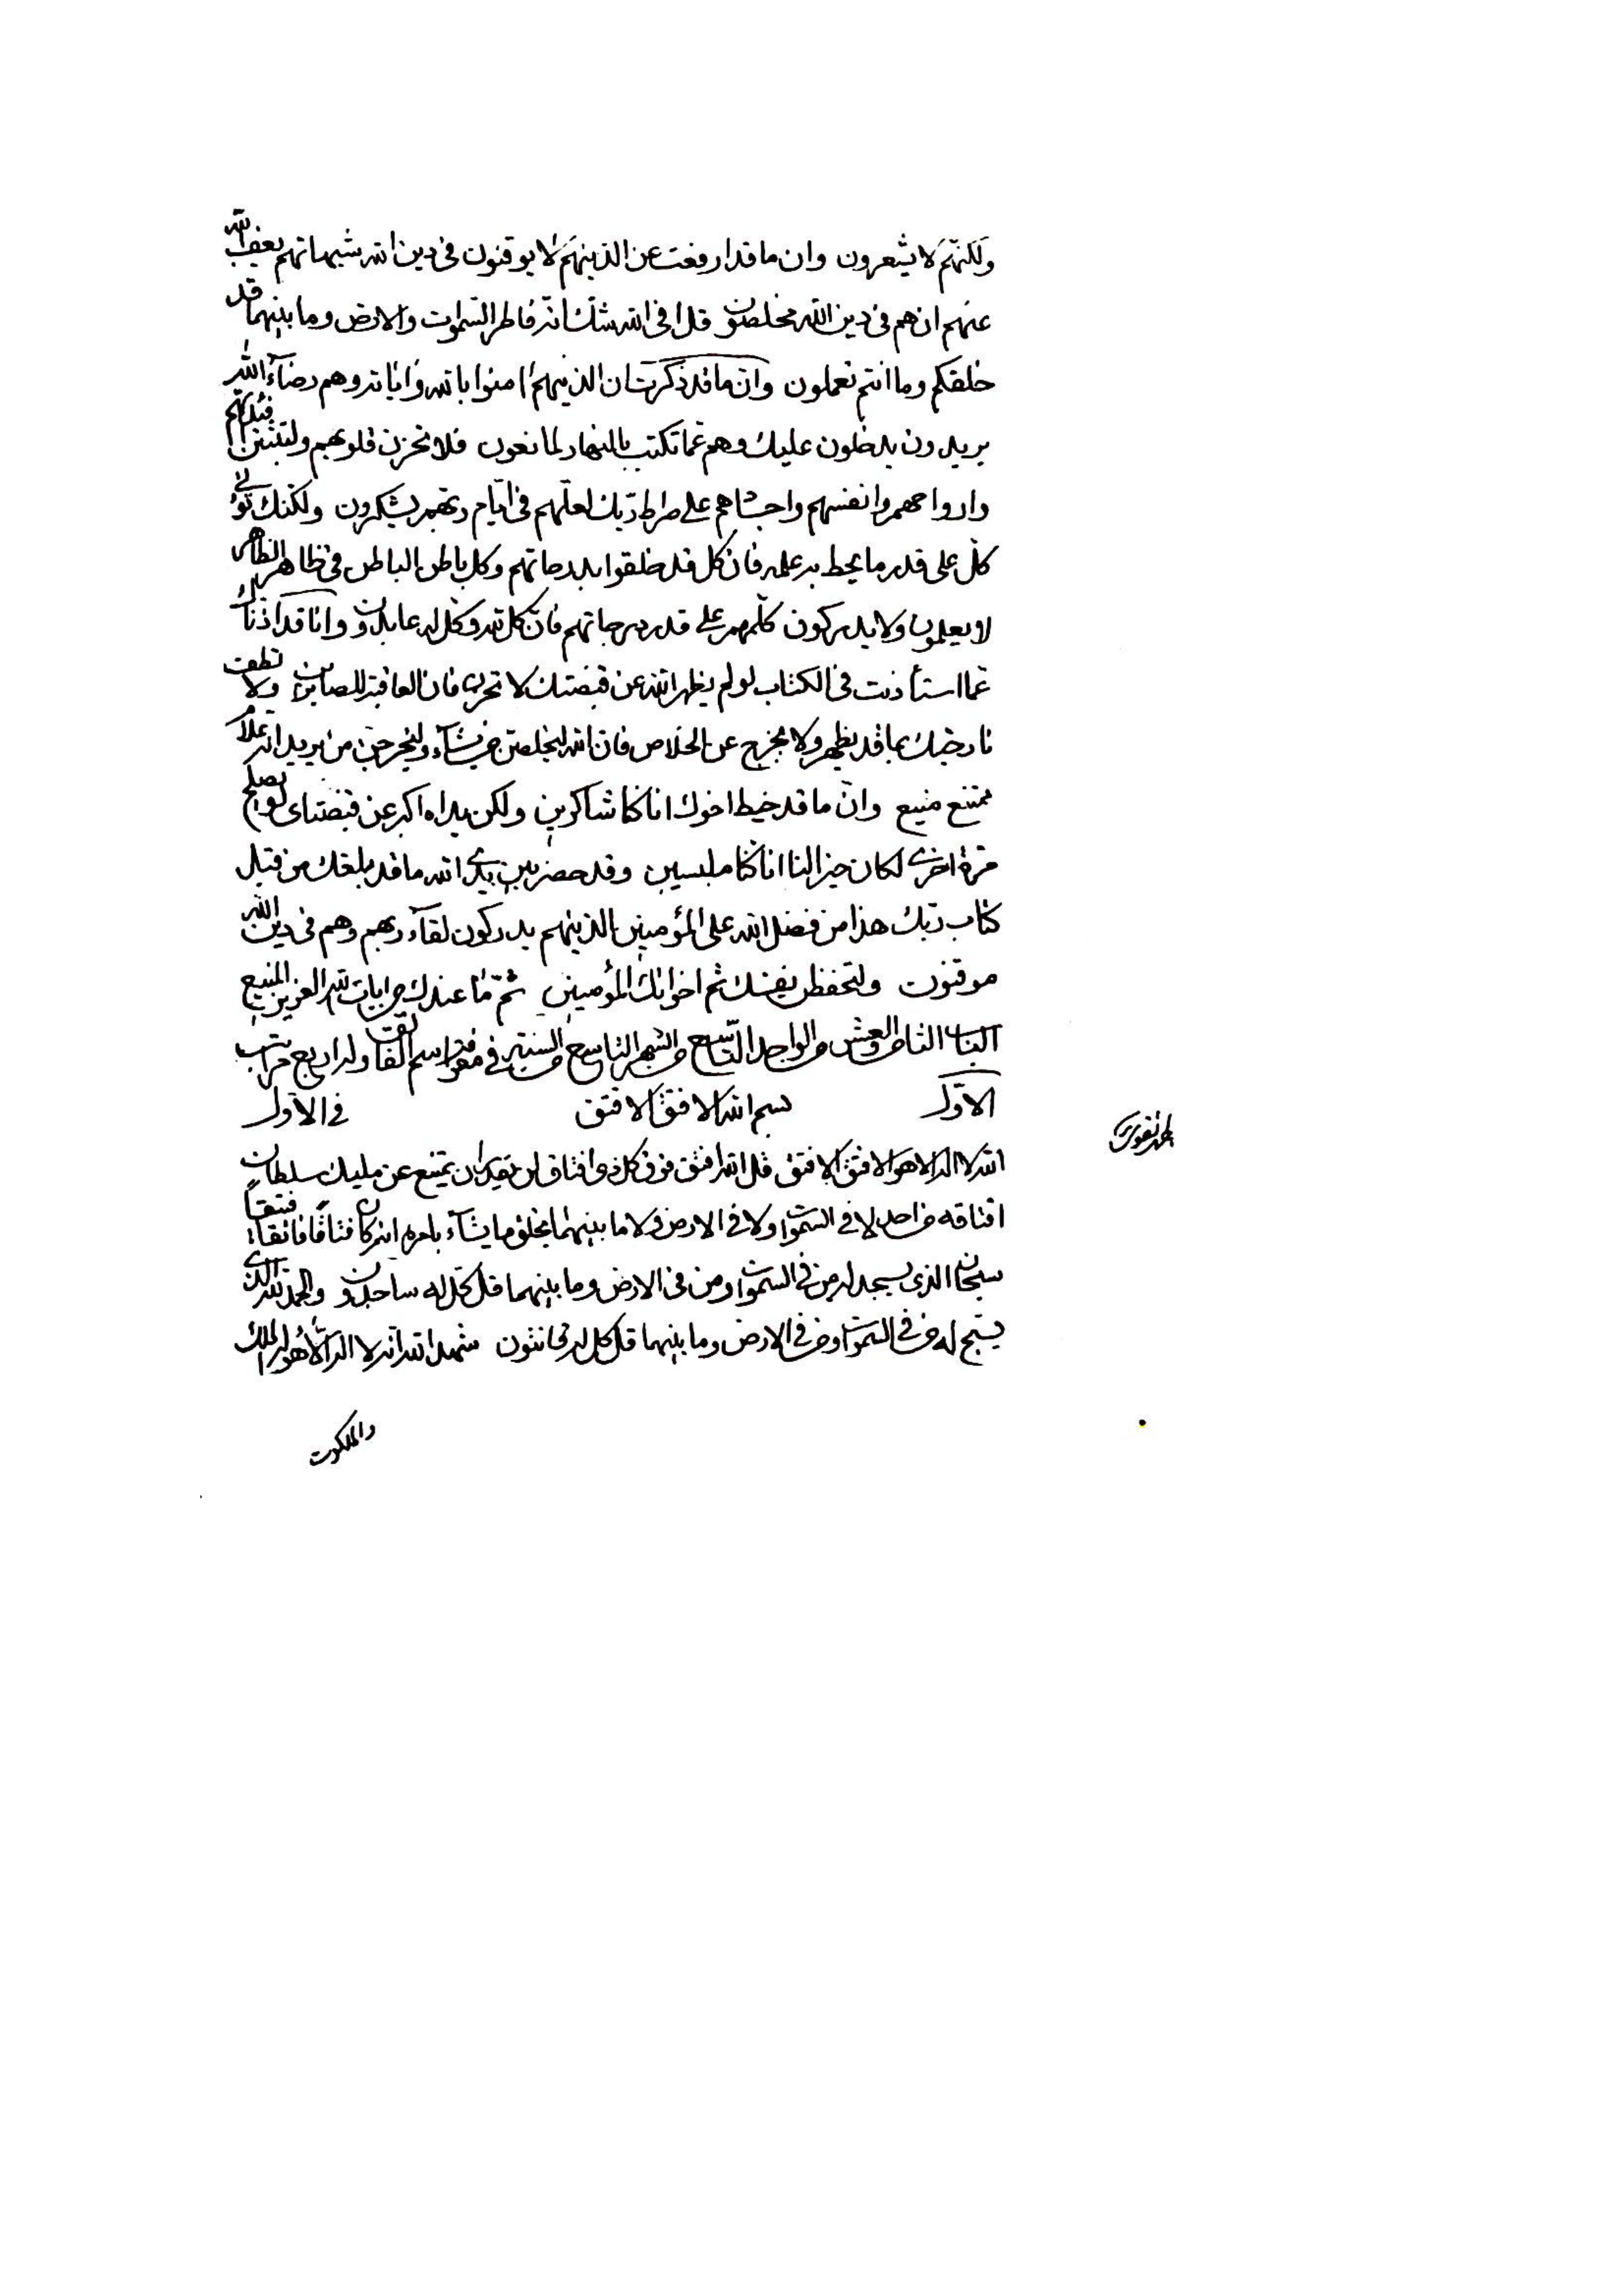 ولكنهم لا يشعرون وان ما قد ارفعت عن الذينهم لا يوقنون في دين الله شبهاتهم يعف الله
عنهم ان هم في دين الله مخلصون قل افي الله شك انه فاطر السموات والارض وما بينهما قد
خلقكم وما انتم تعملون وان ما قد ذكرت ان الذينهم امنوا بالله واياته وهم رضاء الله
يريدون يدخلون عليك وهم عما تكتب بالنهار لمانعون فلا تحزن قلوبهم ولتثبتن افئدتهم
وارواحهم وانفسهم واجسادهم على صراط ربك لعلهم في ايام ربهم يشكرون ولكنك تؤتي
كل على قدر ما يحط به علمه فان كل قد خلقوا بدرجاتهم وكل باطن الباطن في ظاهر الظاهر
لا يعلمون ولا يدركون كلهم على قدر درجاتهم فان كل لله وكل له عابدون وانا قد اذناك
عما استأذنت في الكتاب لو لم يظهر الله عن قبضتك لا تحزن فان العاقبة للصابرين ولا
نارجنك بما قد يظهر ولا مخرج عن الخلاص فان الله ليخلصن من يشاء وليخرجن من يريد انه علام
ممتنع منيع وان ما قد خيط اخوك انا كنا شاكرين ولكن يداه اكبر عن قبضتاي لو يصلح
مرة اخرى لكان خيرا لنا انا كنا ملبسين وقد حضر بين يدي الله ما قد بلغك من قبل
كتاب ربك هذا من فضل الله على المؤمنين الذينهم يدركون لقاء ربهم وهم في دين الله
موقنون ولتحفظن نفسك ثم اخوانك المؤمنين ثم ما عندك من ايات الله العزيز المنيع
الباب الثامن والعشر من الواحد التاسع من الشهر التاسع من السنة في معرفة اسم الفتاق وله اربع مراتب
الاول بسم الله الافتق الافتق في الاول
الله لا اله الا هو الافتق الافتق قل الله افتق فوق كل ذي افتاق لن يقدر ان يمتنع عن مليك سلطان
افتاقه من احد لا في السموات ولا في الارض ولا ما بينهما يخلق ما يشاء بامره انه كان فتاقا فاتقا فتيقا
سبحان الذي يسجد له من في السموات ومن في الارض وما بينهما قل كل له ساجدون والحمد لله الذي
يسبح له من في السموات ومن في الارض وما بينهما قل كل له قانتون شهد الله انه لا اله الا هو له الملك
والملكوت